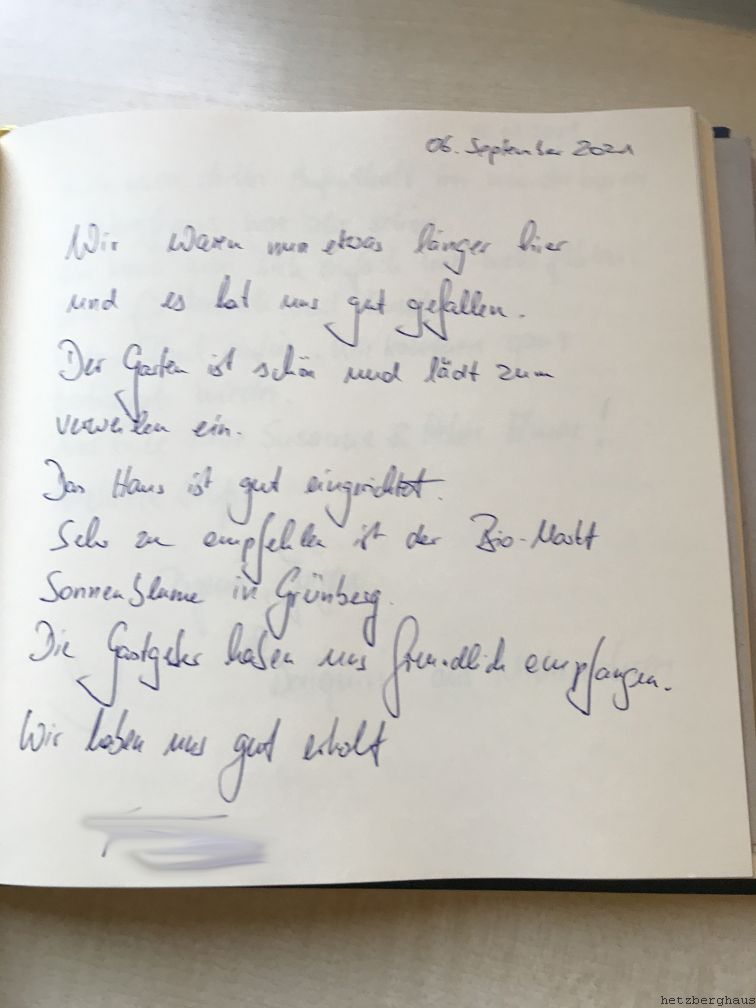 06. September 2021
Wir waren nun etwas länger hier
und es hat uns gut gefallen.
Der Garten ist schön und lädt zum
verweilen ein.
Das Haus ist gut eingerichtet.
Sehr zu empfehlen ist der Bio-Markt
Sonnenblume in Grünberg.
Die Gastgeber haben uns freundlich empfangen.
Wir haben uns gut erholt
hetzberghaus